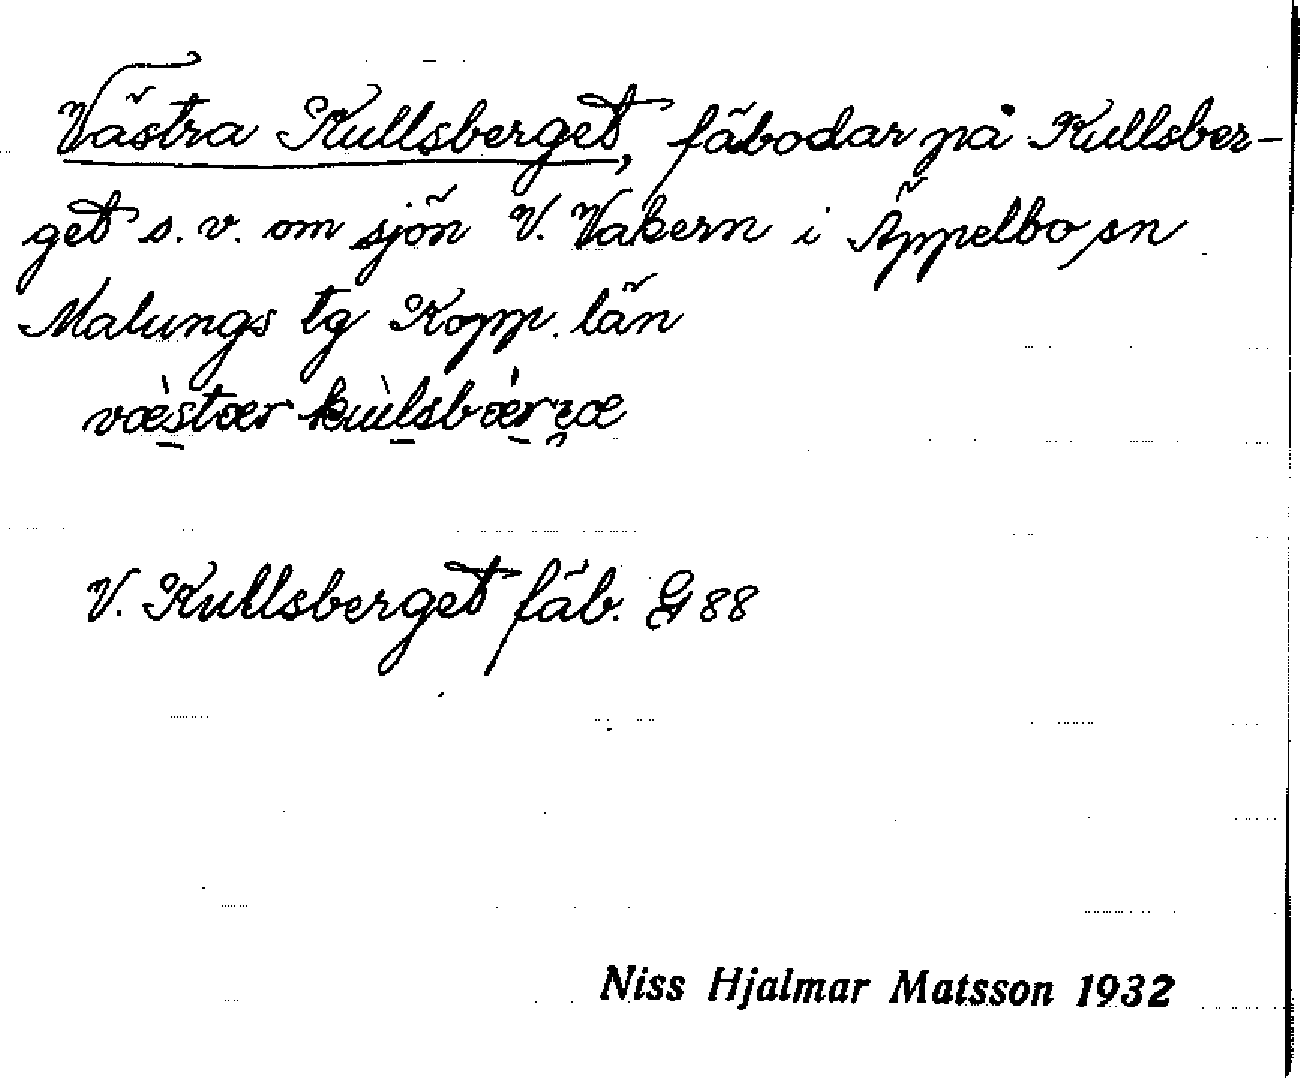 Västra Kullsberget, fäbodar på Kullsber-
get s. v. om sjön V. Vakern i Äppelbo sn
Malungs tg Kopp. län
væ̀stær kùlsbæ̀rʒæ
V. Kullsberget fäb. G 88
Niss Hjalmar Matsson 1932